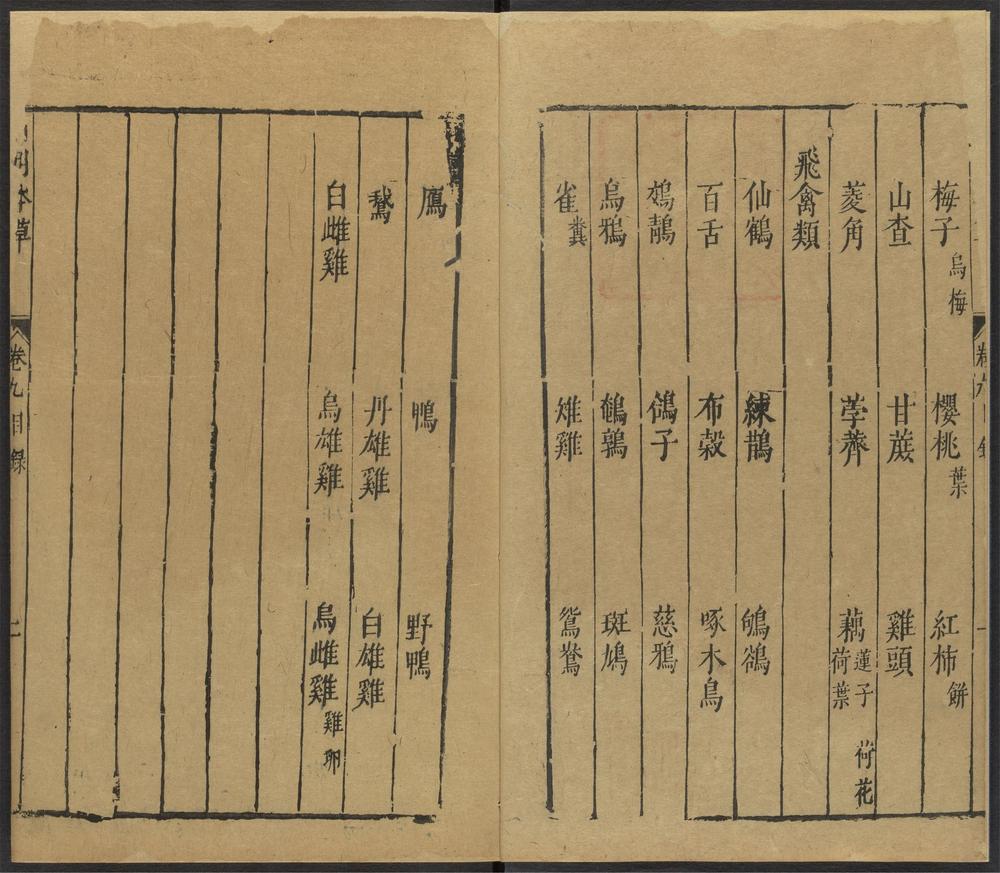 梅子 烏梅 櫻桃 葉 紅柿 餅
山查 甘蔗 雞頭
菱角 荸薺 藕 蓮子 荷葉 荷花
飛禽類
仙鶴 練鵲
百舌 布穀 啄木鳥
鴣 鴿子 慈鴉
烏鴉 鵪鶉 斑鳩
雀 糞 雉雞 鴛鴦
鷹 鴨 野鴨
鵞 丹雄雞 白雄雞
白雌雞 烏雄雞 烏雌雞 雞卵
本草 卷九目錄 二